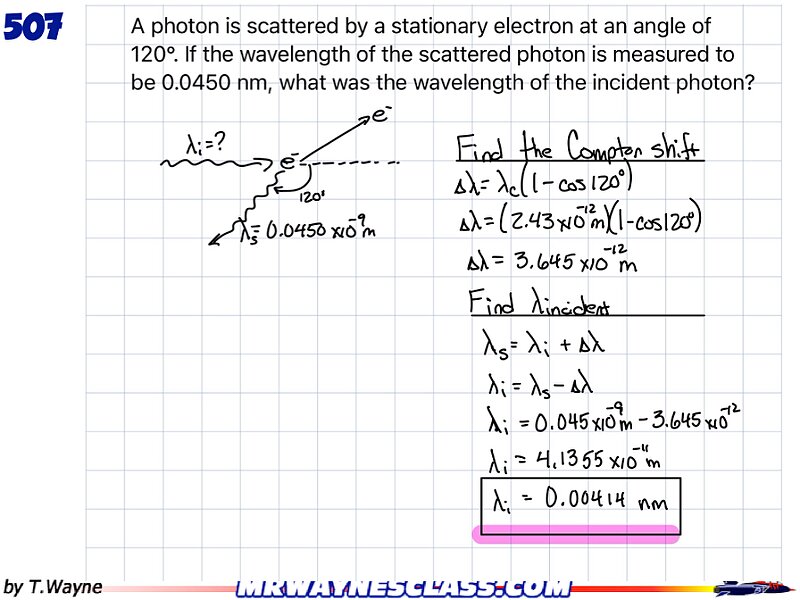 507
A photon is scattered by a stationary electron at an angle of
120°. If the wavelength of the scattered photon is measured to
be 0.0450 nm, what was the wavelength of the incident photon?
λi=?
e⁻
e⁻
120°
λs=0.0450 x10⁻⁹m
Find the Compton shift
Δλ=λc(1-cos120°)
Δλ=(2.43x10⁻¹²m)(1-cos120°)
Δλ= 3.645x10⁻¹²m
Find λincident
λs= λi + Δλ
λi = λs - Δλ
λi = 0.045x10⁻⁹m - 3.645x10⁻¹²
λi = 4.1355x10⁻¹¹m
λi = 0.00414 nm
by T.Wayne
MRWAYNESCLASS.COM